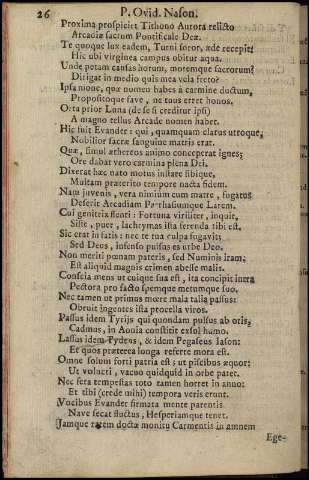 26
P. Ovid. Nason.
Proxima prospiciet Tithono Aurora relicto
Arcadiæ sacrum Pontificale Deæ.
Te quoque lux eadem, Turni soror, æde recepit;
Hic ubi virginea campus obitur aqua.
Unde petam causas horum, moremque sacrorum?
Dirigat in medio quis mea vela freto?
Ipsa mone, quæ nomen habes à carmine ductum,
Propositoque fave, ne tuus erret honos.
Orta prior Luna (de se si creditur ipsi)
A magno tellus Arcade nomen habet.
Hic fuit Evander: qui, quamquam clarus utroque,
Nobilior sacræ sanguine matris erat.
Quæ, simul æthereos animo conceperat ignes;
Ore dabat vero carmina plena Dei.
Dixerat hæc nato motus instare sibique,
Multam præterito tempore nacta fidem.
Nam juvenis, vera nimium cum matre, fugatus
Deserit Arcadiam Parrhasiumque Larem.
Cui genitrix flenti: Fortuna viriliter, inquit,
Siste, puer, lachrymas ista ferenda tibi est.
Sic erat in fatis: nec te tua culpa fugavit;
Sed Deus, infenso pulsus es urbe Deo.
Non meriti pœnam pateris, sed Numinis iram,
Est aliquid magnis crimen abesse malis.
Conscia mens ut cuique sua est, ita concipit intra
Pectora pro facto spemque metumque suo.
Nec tamen ut primus mœre mala talia passus:
Obruit ingentes ista procella viros.
Passus idem Tyriis qui quondam pulsus ab oris,
Cadmus, in Aonia constitit exsul humo.
Lassus idem Tydeus, & idem Pegaseus Iason:
Et quos præterea longa referre mora est.
Omne solum forti patria est; ut piscibus æquor:
Ut volucri, vacuo quidquid in orbe patet.
Nec fera tempestas toto tamen horret in anno:
Et tibi (crede mihi) tempora veris erunt.
Vocibus Evander firmata mente parentis
Nave secat fluctus, Hesperiamque tenet.
Jamque ratem doctæ monitu Carmentis in amnem
Ege-